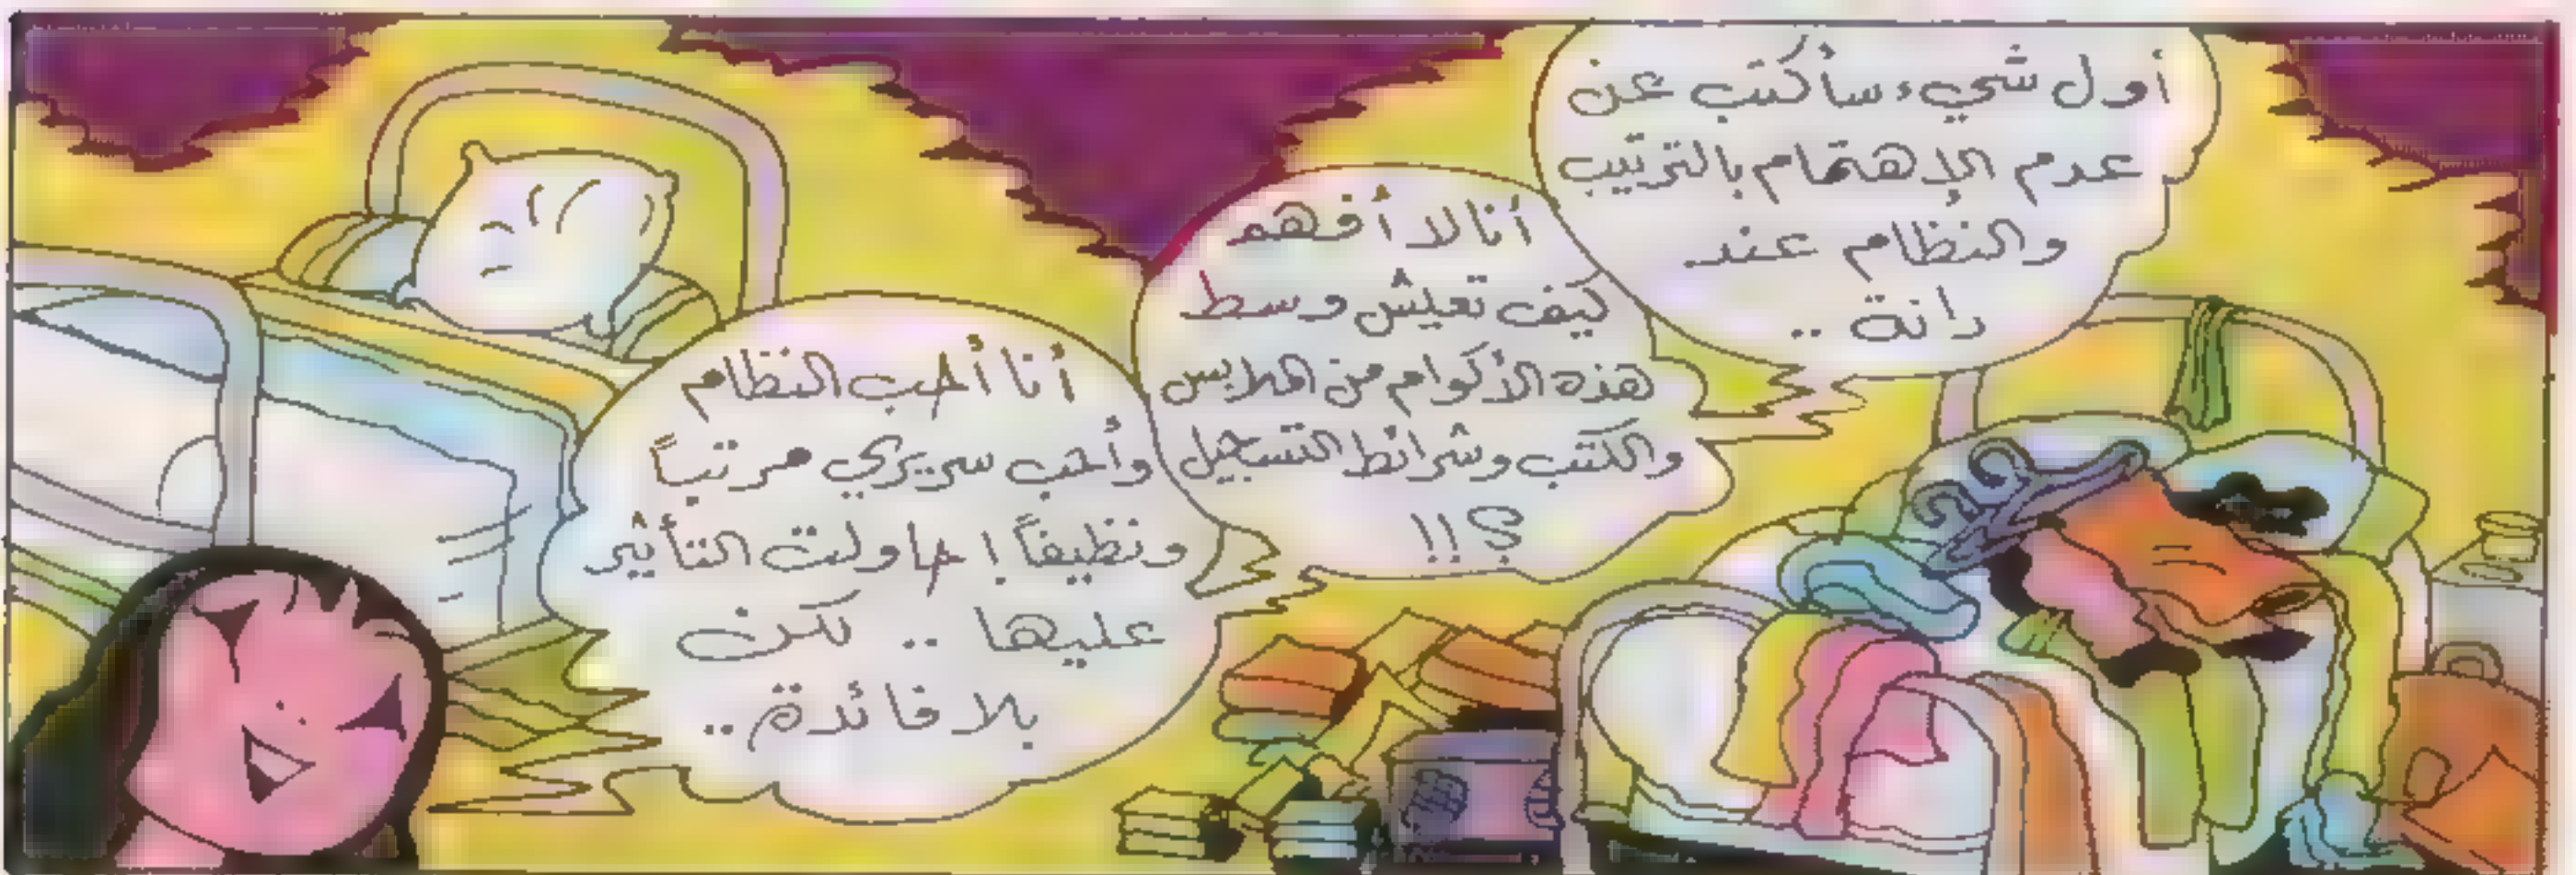 أول شيء سأكتب عن
عدم الإهتمام بالترتيب
والنظام عند
رانة ..
أنا لا أفهم
كيف تعيش وسط
هذه الأكوام من الملابس
والكتب وشرائط التسجيل
؟!!
أنا أحب النظام
وأحب سريري مرتباً
ونظيفاً! حاولت التأثير
عليها .. لكن
بلا فائدة ..